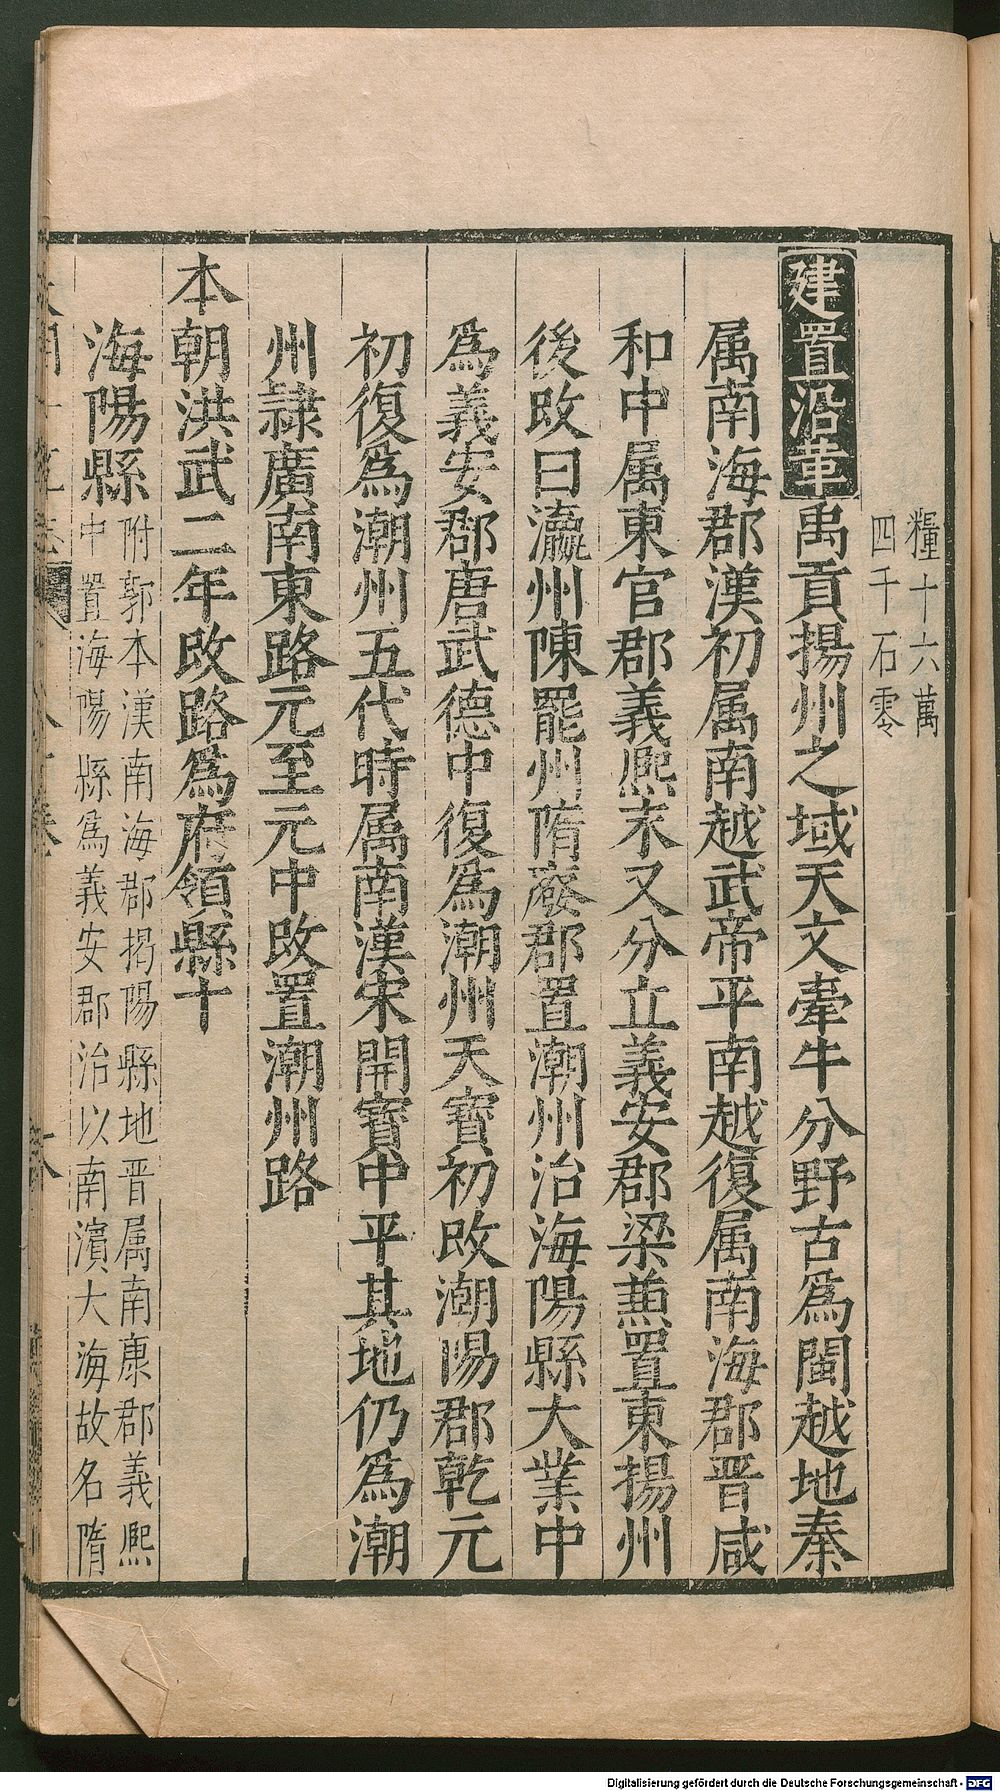 糧十六萬
四千石零
建置沿革禹貢揚州之域天文牽牛分野古爲閩越地秦
属南海郡漢初属南越武帝平南越復属南海郡晋咸
和中属東官郡義熙末又分立義安郡梁兼置東揚州
後改曰瀛州陳罷州隋廢郡置潮州治海陽縣大業中
爲義安郡唐武德中復爲潮州天寶初改潮陽郡乾元
初復爲潮州五代時属南漢宋開寶中平其地仍爲潮
州隷廣南東路元至元中改置潮州路
本朝洪武二年改路爲府領縣十
海陽縣附郭本漢南海郡揭陽縣地晋属南康郡義熙
中置海陽縣爲義安郡治以南濵大海故名隋
Digitalisierung gefördert durch die Deutsche Forschungsgemeinschaft - DFG